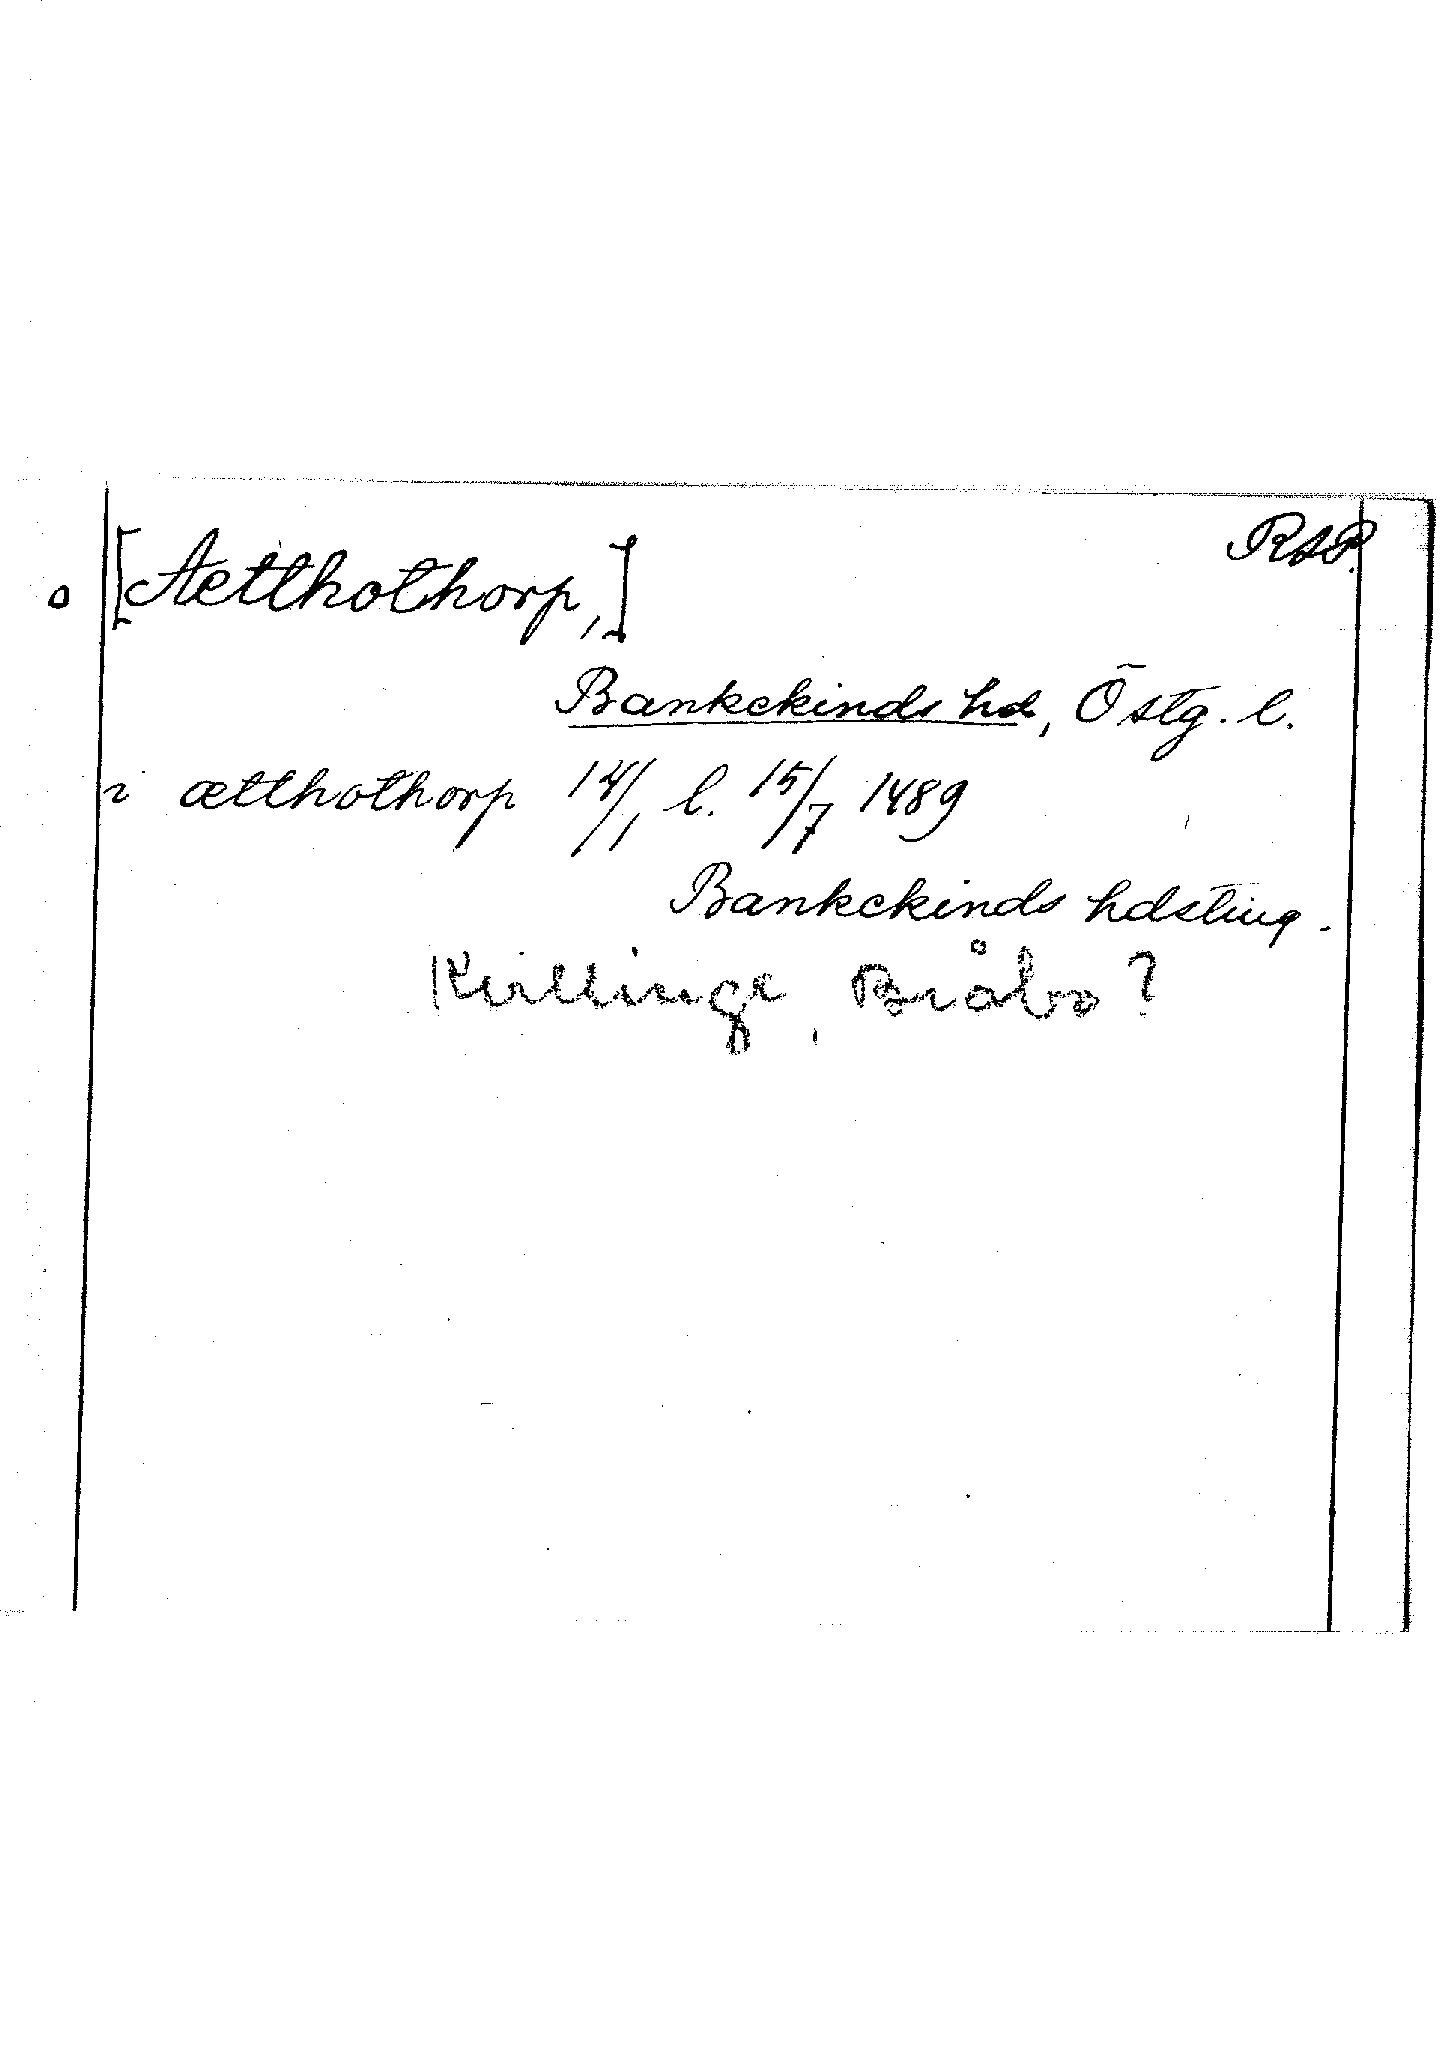 RAP.
o [Aetthothorp,]
Bankekinds hd, Östg. l.
i ætthothorp 14/1 l. 15/7 1489
Bankekinds hdsting.
Kvillinge, Bråbo?